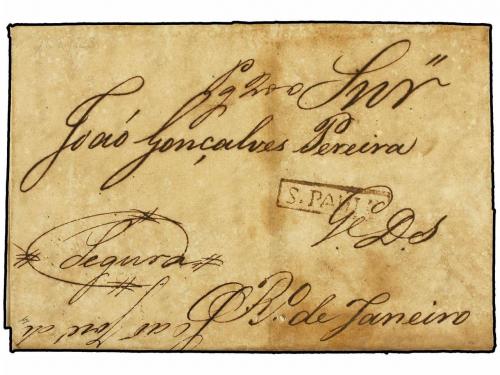 Pg 200 Snr
João Gonçalves Pereira
S. PAULO
Ve. D.s
# Segura #
Ro. de Janeiro